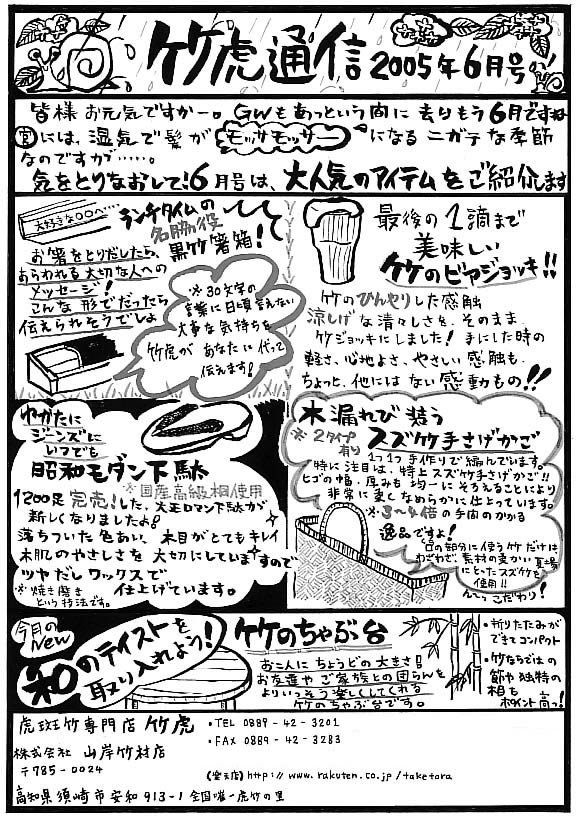 竹虎通信 2005年6月号
皆様お元気ですかー。GWもあっという間に去りもう6月ですね
宮には、湿気で髪がモッサモッサーになるニガテな季節
なのですが……。
気をとりなおして!6月号は、大人気のアイテムをご紹介します
大好きな○○へ…
ランチタイムの
名脇役
黒竹箸箱!
お箸をとりだしたら、
あらわれる大切な人への
メッセージ!
こんな形でだったら
伝えられそうでしょ
※30文字の
言葉に日頃言えない
大事な気持ちを
竹虎があなたに代って
伝えます!
最後の1滴まで
美味しい
竹のビアジョッキ!!
竹のひんやりした感触
涼しげな清々しさを、そのまま
竹ジョッキにしました!手にした時の
軽さ、心地よさ、やさしい感触も、
ちょっと、他にはない感動もの!!
ゆかたに
ジーンズに
いつでも
昭和モダン下駄
※国産高級桐使用
1200足完売!した、大正ロマン下駄が
新しくなりましたよ!
落ちついた色あい、木目がとてもキレイ
木肌のやさしさを大切にしていますので
ツヤだしワックスで
仕上げています。
※焼き磨き
という技法です。
木漏れび装う
※2タイプ
有り
スズ竹手さげかご
1つ1つ手作りで編んでいます。
特に注目は、特上スズ竹手さげかご!!
ヒゴの幅、厚みも均一にそろえることにより
非常に美しくなめらかに仕上っています。
※3〜4倍の手間のかかる
逸品ですよ!
白の部分に使う竹だけは
わざわざ、素材の変かい夏場
にとったスズ竹を
使用!!
んーっこだわり!
今月のNew
和のテイストを
取り入れよう!
竹のちゃぶ台
お二人にちょうどの大きさ!
お友達やご家族との団らんを
よりいっそう楽しくしてくれる
竹のちゃぶ台です。
・折りたたみが
できてコンパクト
・竹ならではの
節や独特の
相も
ポイント高っ!
虎斑竹専門店 竹虎
株式会社 山岸竹材店
〒785-0024
・TEL 0889-42-3201
・FAX 0889-42-3283
(楽天店)http://www.rakuten.co.jp/taketora
高知県須崎市安和913-1 全国唯一虎竹の里